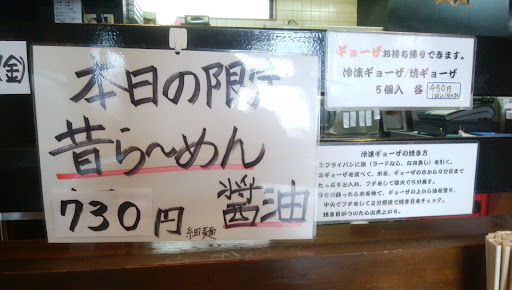 (金)
本日の限定
昔ら〜めん
730円
醤油
細麺
ギョーザお持ち帰りできます。
冷凍ギョーザ/焼ギョーザ
5個入 各450円
冷凍ギョーザの焼き方
①フライパンに油(ラードなら、なお良し)を引く。
②ギョーザを並べて、水を、ギョーザの高さの2分目まで
たっぷりと入れ、フタをして強火で5分蒸す。
③5分経ったら水を捨て、ギョーザの上から油を塗り、
中火でフタをして2分前後で焼き目をチェック。
焼き目がついたら出来上がり。